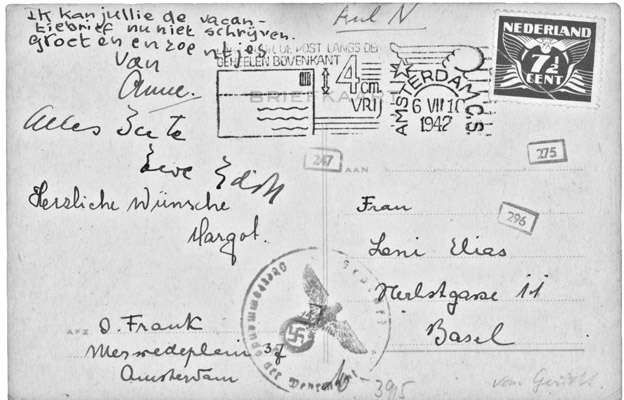 Ik kan jullie de vacan-
tiebrief nu niet schrijven.
groeten en zoentjes
van
Anne.
Alles Gute
Eure Edith
Herzliche Wünsche
Margot.
DE POST LANGS DE
GEHELEN BOVENKANT
4 cm.
VRIJ
BRIEFKAART
AMSTERDAM C.S.
6 VII 10
1942
NEDERLAND
7½
CENT
247
AAN
275
296
Frau
Leni Elias
Herbstgasse 11
Basel
AFZ.
O. Frank
Merwedeplein 37
Amsterdam
Oberkommando
der Wehrmacht
Geprüft
3915